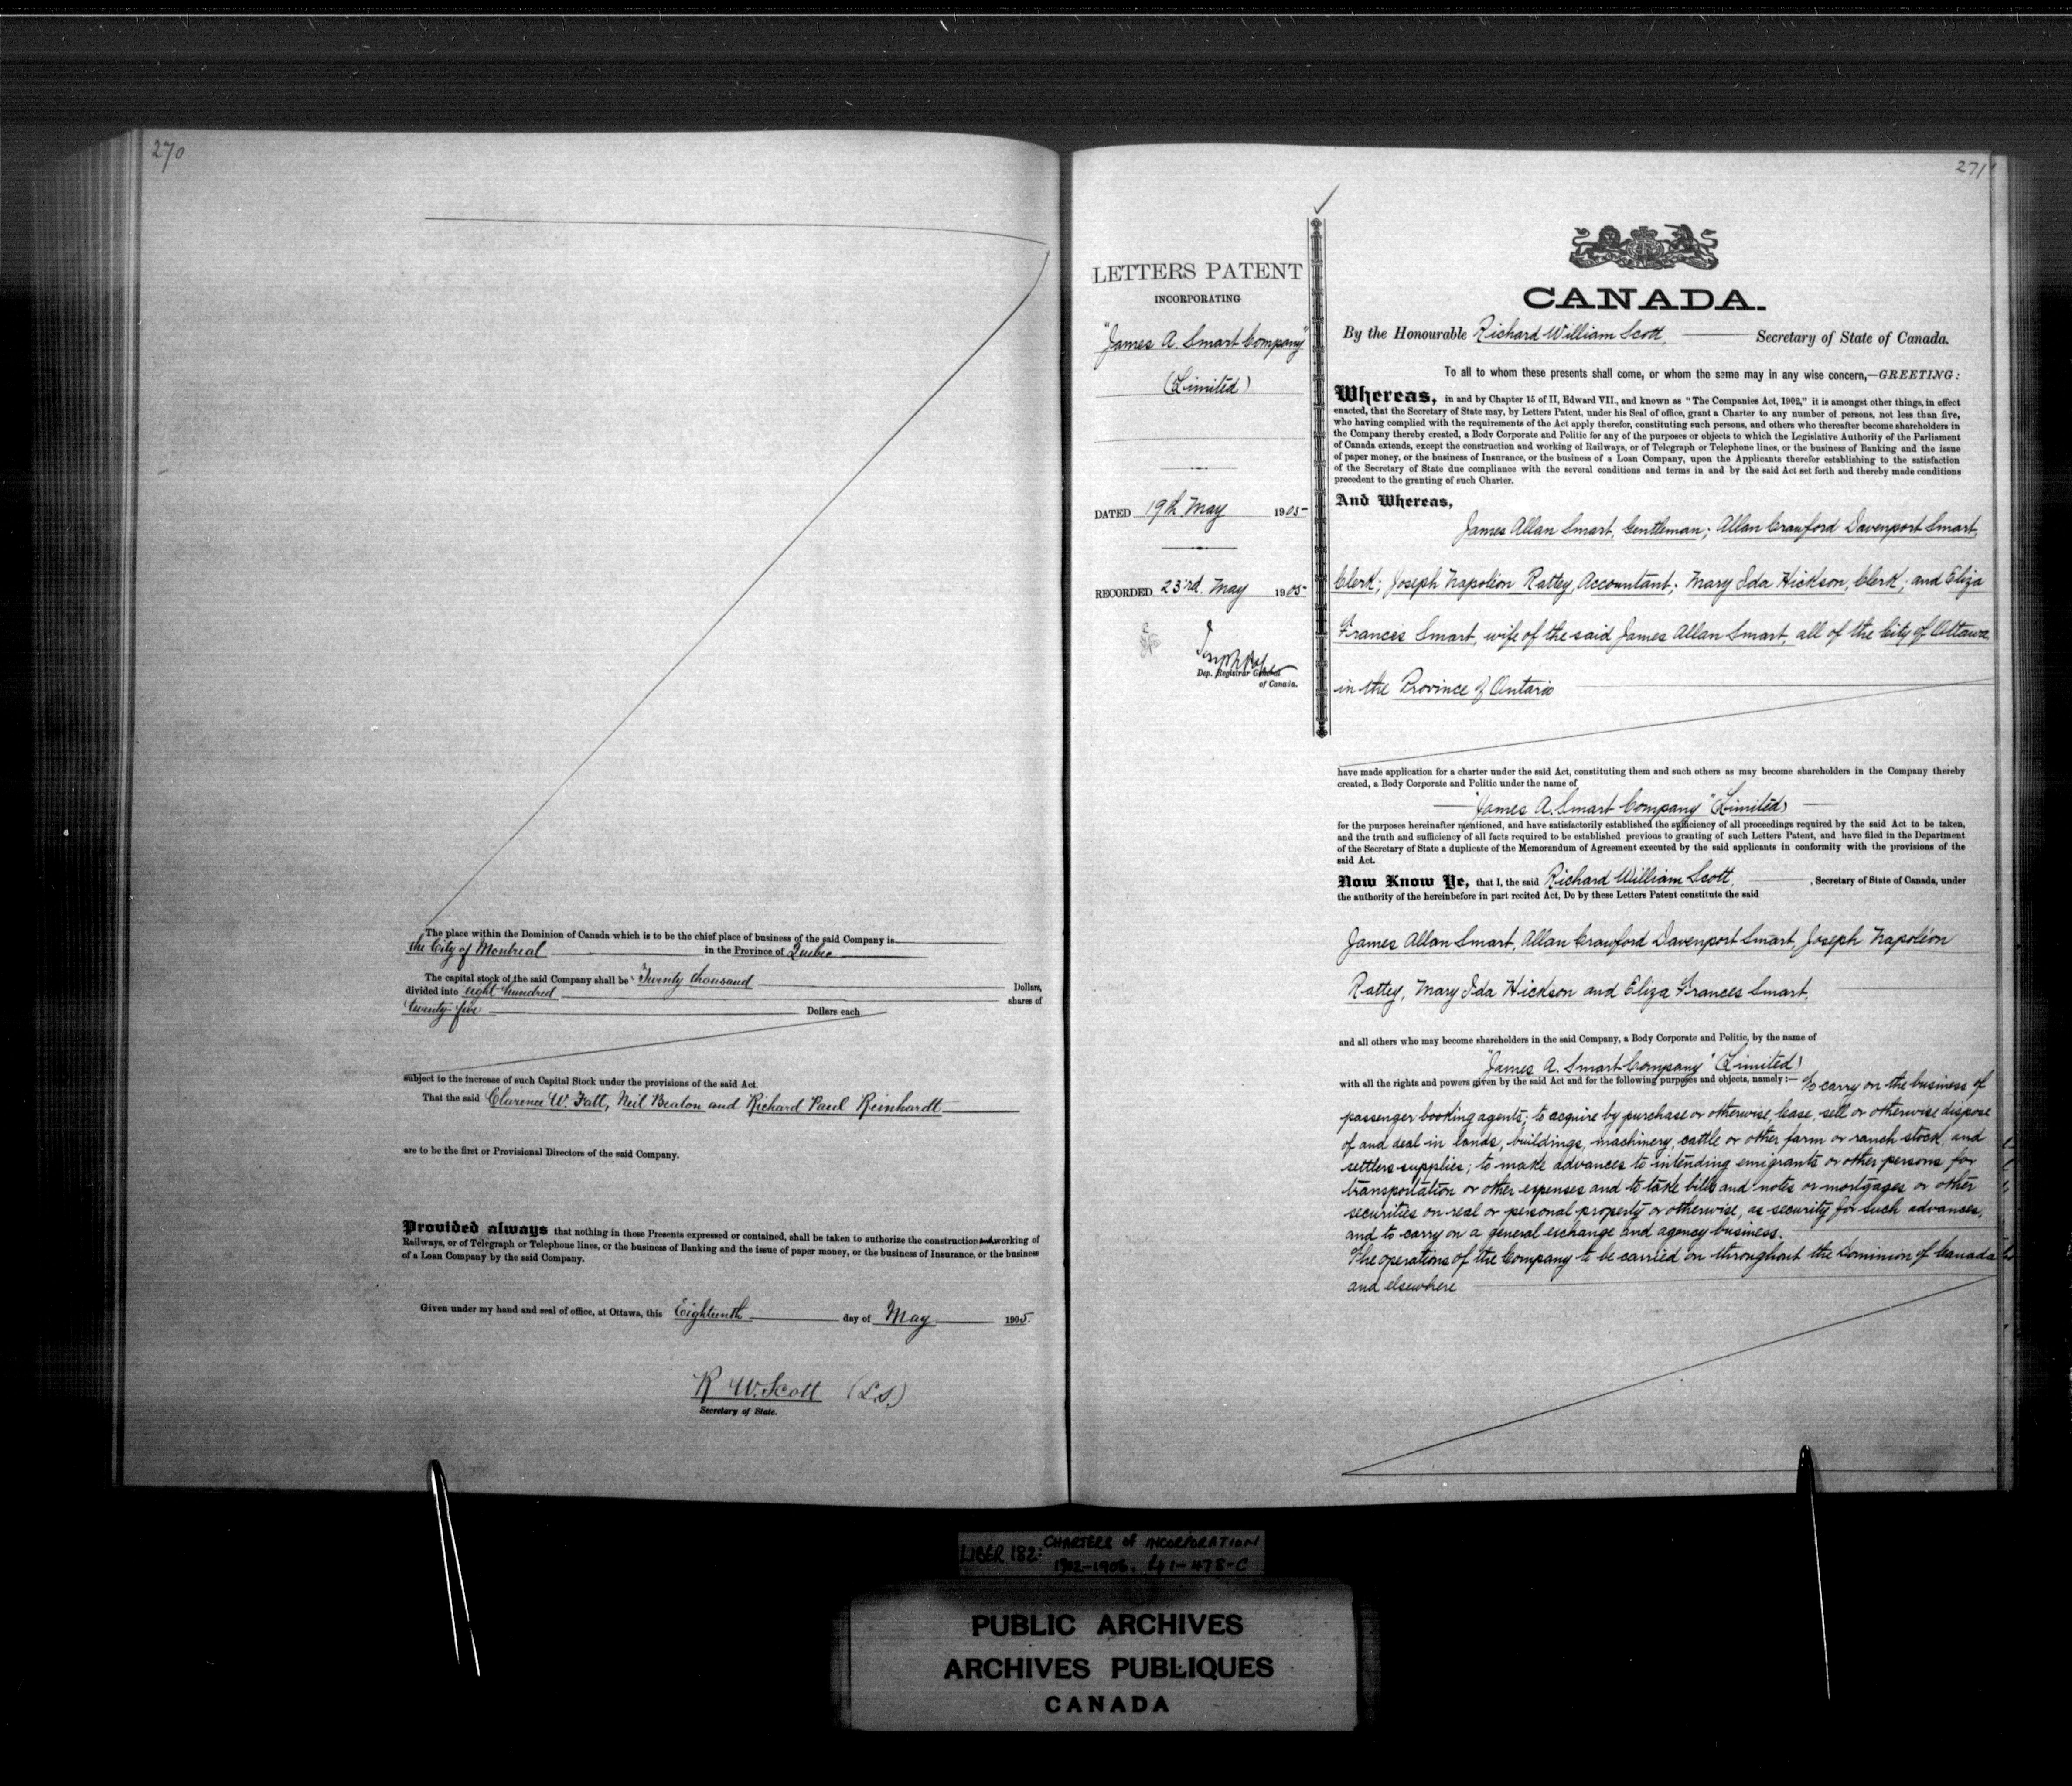 270
The place within the Dominion of Canada which is to be the chief place of business of the said Company is
the City of Montreal in the Province of Quebec
The capital stock of the said Company shall be Twenty thousand Dollars,
divided into eight hundred shares of
twenty-five Dollars each
subject to the increase of such Capital Stock under the provisions of the said Act.
That the said Clarence W. Fatt, Neil Beaton and Richard Paul Reinhardt
are to be the first or Provisional Directors of the said Company.
Provided always that nothing in these Presents expressed or contained, shall be taken to authorize the construction and working of
Railways, or of Telegraph or Telephone lines, or the business of Banking and the issue of paper money, or the business of Insurance, or the business
of a Loan Company by the said Company.
Given under my hand and seal of office, at Ottawa, this Eighteenth day of May 1905.
R W. Scott (L.S.)
Secretary of State.
271
LETTERS PATENT
INCORPORATING
"James A. Smart Company"
(Limited)
DATED 19th May 1905
RECORDED 23rd. May 1905
Dep. Registrar General
of Canada.
CANADA.
By the Honourable Richard William Scott, Secretary of State of Canada.
To all to whom these presents shall come, or whom the same may in any wise concern,—GREETING:
Whereas, in and by Chapter 15 of II, Edward VII., and known as "The Companies Act, 1902," it is amongst other things, in effect
enacted, that the Secretary of State may, by Letters Patent, under his Seal of office, grant a Charter to any number of persons, not less than five,
who having complied with the requirements of the Act apply therefor, constituting such persons, and others who thereafter become shareholders in
the Company thereby created, a Body Corporate and Politic for any of the purposes or objects to which the Legislative Authority of the Parliament
of Canada extends, except the construction and working of Railways, or of Telegraph or Telephone lines, or the business of Banking and the issue
of paper money, or the business of Insurance, or the business of a Loan Company, upon the Applicants therefor establishing to the satisfaction
of the Secretary of State due compliance with the several conditions and terms in and by the said Act set forth and thereby made conditions
precedent to the granting of such Charter.
And Whereas,
James Allan Smart, Gentleman; Allan Crawford Davenport Smart,
Clerk; Joseph Napoléon Rattey, Accountant; Mary Ida Hickson, Clerk; and Eliza
Frances Smart, wife of the said James Allan Smart, all of the City of Ottawa
in the Province of Ontario
have made application for a charter under the said Act, constituting them and such others as may become shareholders in the Company thereby
created, a Body Corporate and Politic under the name of
"James A. Smart Company" (Limited)
for the purposes hereinafter mentioned, and have satisfactorily established the sufficiency of all proceedings required by the said Act to be taken,
and the truth and sufficiency of all facts required to be established previous to granting of such Letters Patent, and have filed in the Department
of the Secretary of State a duplicate of the Memorandum of Agreement executed by the said applicants in conformity with the provisions of the
said Act.
Now Know Ye, that I, the said Richard William Scott, , Secretary of State of Canada, under
the authority of the hereinbefore in part recited Act, Do by these Letters Patent constitute the said
James Allan Smart, Allan Crawford Davenport Smart, Joseph Napoléon
Rattey, Mary Ida Hickson and Eliza Frances Smart,
and all others who may become shareholders in the said Company, a Body Corporate and Politic, by the name of
"James A. Smart Company" (Limited)
with all the rights and powers given by the said Act and for the following purposes and objects, namely:— To carry on the business of
passenger booking agents; to acquire by purchase or otherwise, lease, sell or otherwise dispose
of and deal in lands, buildings, machinery, cattle or other farm or ranch stock, and
settlers supplies; to make advances to intending emigrants or other persons for
transportation or other expenses and to take bills and notes or mortgages or other
securities on real or personal property or otherwise, as security for such advances,
and to carry on a general exchange and agency business.
The operations of the Company to be carried on throughout the Dominion of Canada
and elsewhere
LIBER 182: CHARTERS of INCORPORATION
1902-1906. 41-478-C
PUBLIC ARCHIVES
ARCHIVES PUBLIQUES
CANADA